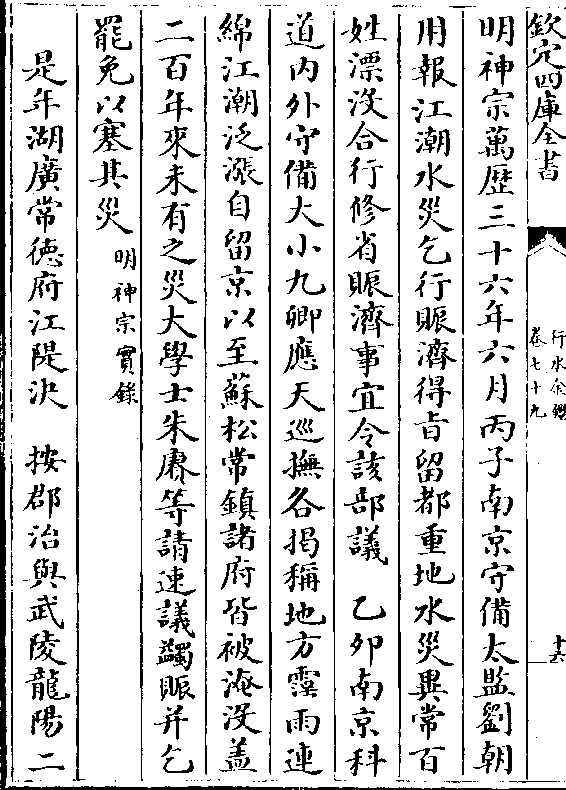 欽定四庫全書
行水金鑑
卷七十九
十六
明神宗萬歷三十六年六月丙子南京守備太監劉朝
用報江潮水災乞行賑濟得旨留都重地水災異常百
姓漂沒合行修省賑濟事宜令該部議　乙卯南京科
道內外守備大小九卿應天巡撫各揭稱地方霪雨連
綿江潮泛漲自留京以至蘇松常鎮諸府皆被淹沒蓋
二百年來未有之災大學士朱賡等請速議蠲賑并乞
罷免以塞其災明神宗實錄
是年湖廣常德府江隄決　按郡治與武陵龍陽二